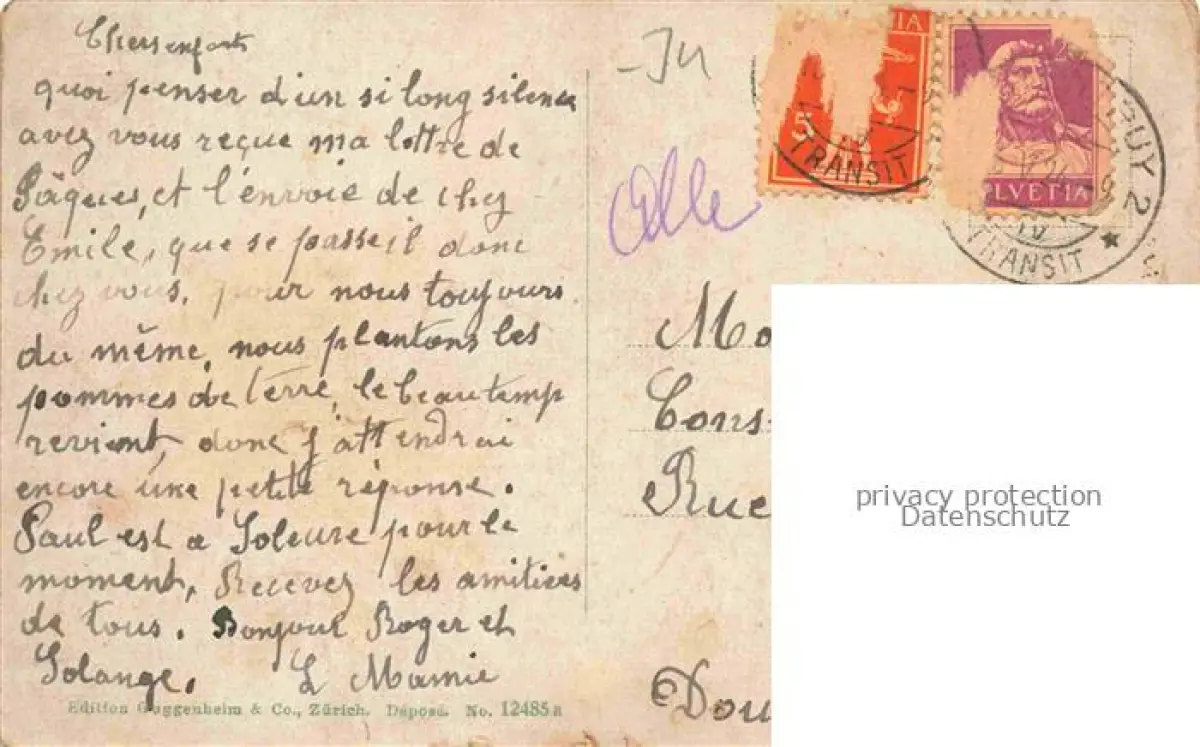 Chers enfants
quoi penser d'un si long silence
avez vous reçue ma lettre de
Pâques, et l'envoie de chez
Emile, que se passe il donc
chez vous, pour nous toujours
du même, nous plantons les
pommes de terre, le beau temp
revient, donc j'attendrai
encore une petite réponse.
Paul est a Soleure pour le
moment, Recevez les amitiées
de tous. Bonjour Roger et
Solange. L Mamie
Edition Guggenheim & Co., Zürich. Déposé. No. 12485 a
Alle
5
IA
TRANSIT
HELVETIA
GUY 2
TRANSIT
IV
Mo
Cons
Rue
Dou
privacy protection
Datenschutz